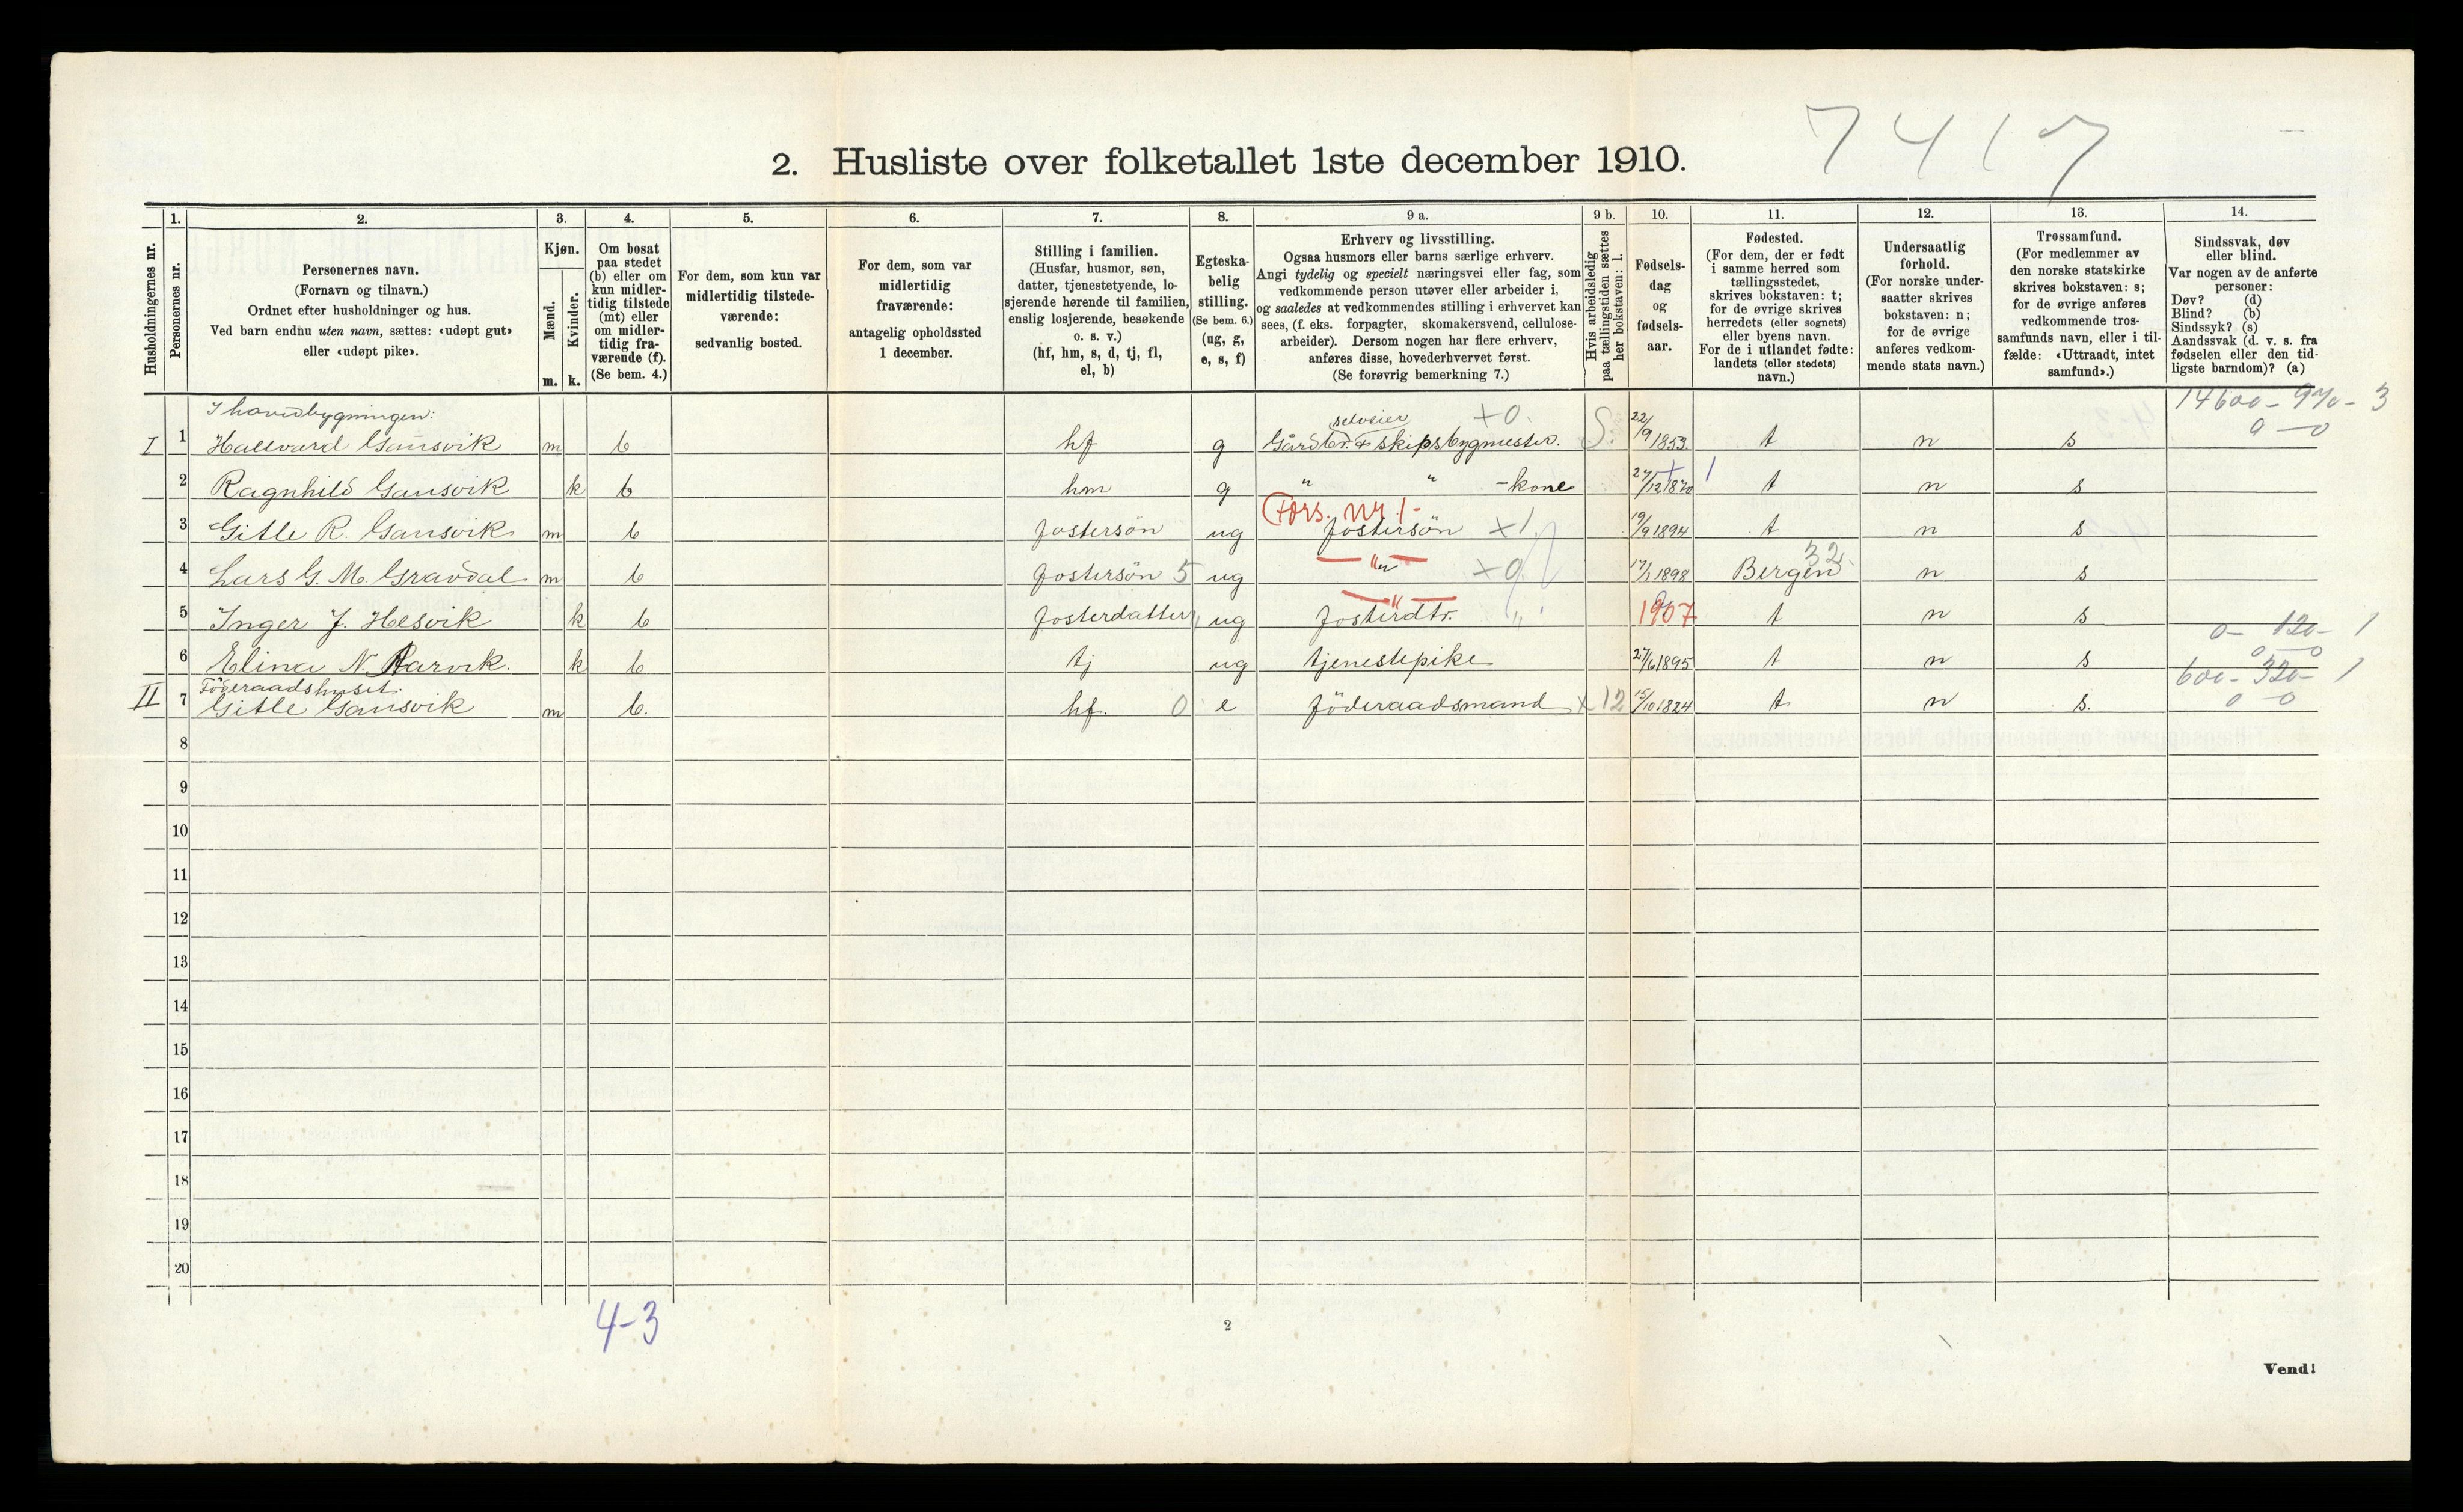 7417
2. Husliste over folketallet 1ste december 1910.
Husholdningernes nr.
1. Personernes nr.
2. Personernes navn.
(Fornavn og tilnavn.)
Ordnet efter husholdninger og hus.
Ved barn endnu uten navn, sættes: «udøpt gut»
eller «udøpt pike».
3. Kjøn.
Mænd. m.
Kvinder. k.
4. Om bosat
paa stedet
(b) eller om
kun midler-
tidig tilstede
(mt) eller
om midler-
tidig fra-
værende (f).
(Se bem. 4.)
5. For dem, som kun var
midlertidig tilstede-
værende:
sedvanlig bosted.
6. For dem, som var
midlertidig
fraværende:
antagelig opholdssted
1 december.
7. Stilling i familien.
(Husfar, husmor, søn,
datter, tjenestetyende, lo-
sjerende hørende til familien,
enslig losjerende, besøkende
o. s. v.)
(hf, hm, s, d, tj, fl,
el, b)
8. Egteska-
belig
stilling.
(Se bem. 6.)
(ug, g,
e, s, f)
9 a. Erhverv og livsstilling.
Ogsaa husmors eller barns særlige erhverv.
Angi tydelig og specielt næringsvei eller fag, som
vedkommende person utøver eller arbeider i,
og saaledes at vedkommendes stilling i erhvervet kan
sees, (f. eks. forpagter, skomakersvend, cellulose-
arbeider). Dersom nogen har flere erhverv,
anføres disse, hovederhvervet først.
(Se forøvrig bemerkning 7.)
9 b. Hvis arbeidsledig
paa tællingstiden sættes
her bokstaven: l.
10. Fødsels-
dag
og
fødsels-
aar.
11. Fødested.
(For dem, der er født
i samme herred som
tællingsstedet,
skrives bokstaven: t;
for de øvrige skrives
herredets (eller sognets)
eller byens navn.
For de i utlandet fødte:
landets (eller stedets)
navn.)
12. Undersaatlig
forhold.
(For norske under-
saatter skrives
bokstaven: n;
for de øvrige
anføres vedkom-
mende stats navn.)
13. Trossamfund.
(For medlemmer av
den norske statskirke
skrives bokstaven: s;
for de øvrige anføres
vedkommende tros-
samfunds navn, eller i til-
fælde: «Uttraadt, intet
samfund».)
14. Sindssvak, døv
eller blind.
Var nogen av de anførte
personer:
Døv? (d)
Blind? (b)
Sindssyk? (s)
Aandssvak (d. v. s. fra
fødselen eller den tid-
ligste barndom)? (a)
I hovedbygningen: selveier +0. 14600 - 970 - 3
I 1 Hallvard Gausvik m b hf g Gårdbr. & skipsbygmester. S. 22/9 1853 t n s 0 — 0
2 Ragnhild Gausvik k b hm g " " -kone 27/12 1870 t n s
Fors. nr 1 -
3 Gitle R. Gausvik m b fostersön ug fostersön ×1 19/9 1894 t n s
4 Lars G. M. Gravdal m b fostersön 5 ug " ×0 17/1 1898 Bergen 32 n s
5 Inger J. Hesvik k b fosterdatter ug fosterdtr. " 1907 t n s
0 - 120 - 1
6 Elina N. Aarvik. k b tj ug tjenestepike 27/6 1895 t n s 0 — 0
Föderaadshuset. 600 - 320 - 1
II 7 Gitle Gausvik m b. hf. 0 e föderaadsmand ×12 15/10 1824 t n s. 0 0
8
9
10
11
12
13
14
15
16
17
18
19
20
4-3
2
Vend!